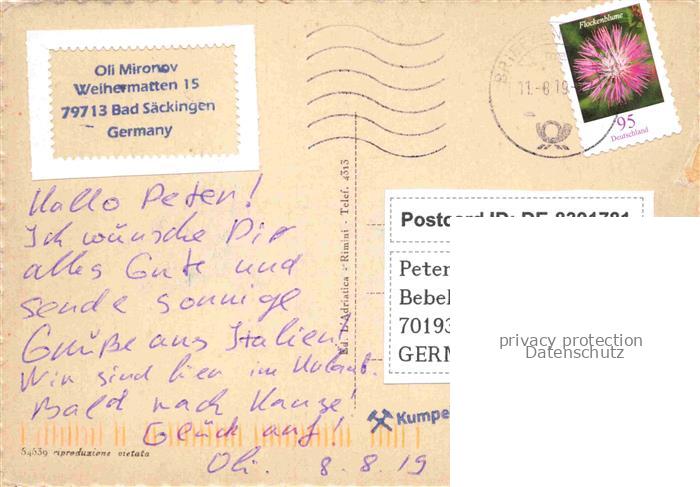 Oli Mironov
Weihermatten 15
79713 Bad Säckingen
Germany
Flockenblume
95
Deutschland
BRI
11.-8 19-
Hallo Peter!
Ich wünsche Dir
alles Gute und
sende sonnige
Grüße aus Italien!
Wir sind hier im Urlaub.
Bald nach Hause!
Glück auf!
Oli. 8.8.19
Ed. L'Adriatica - Rimini - Telef. 4313
Postcard ID: DE-8301781
Peter
Bebel
70193
GERM
privacy protection
Datenschutz
Kumpe
54539 riproduzione vietata